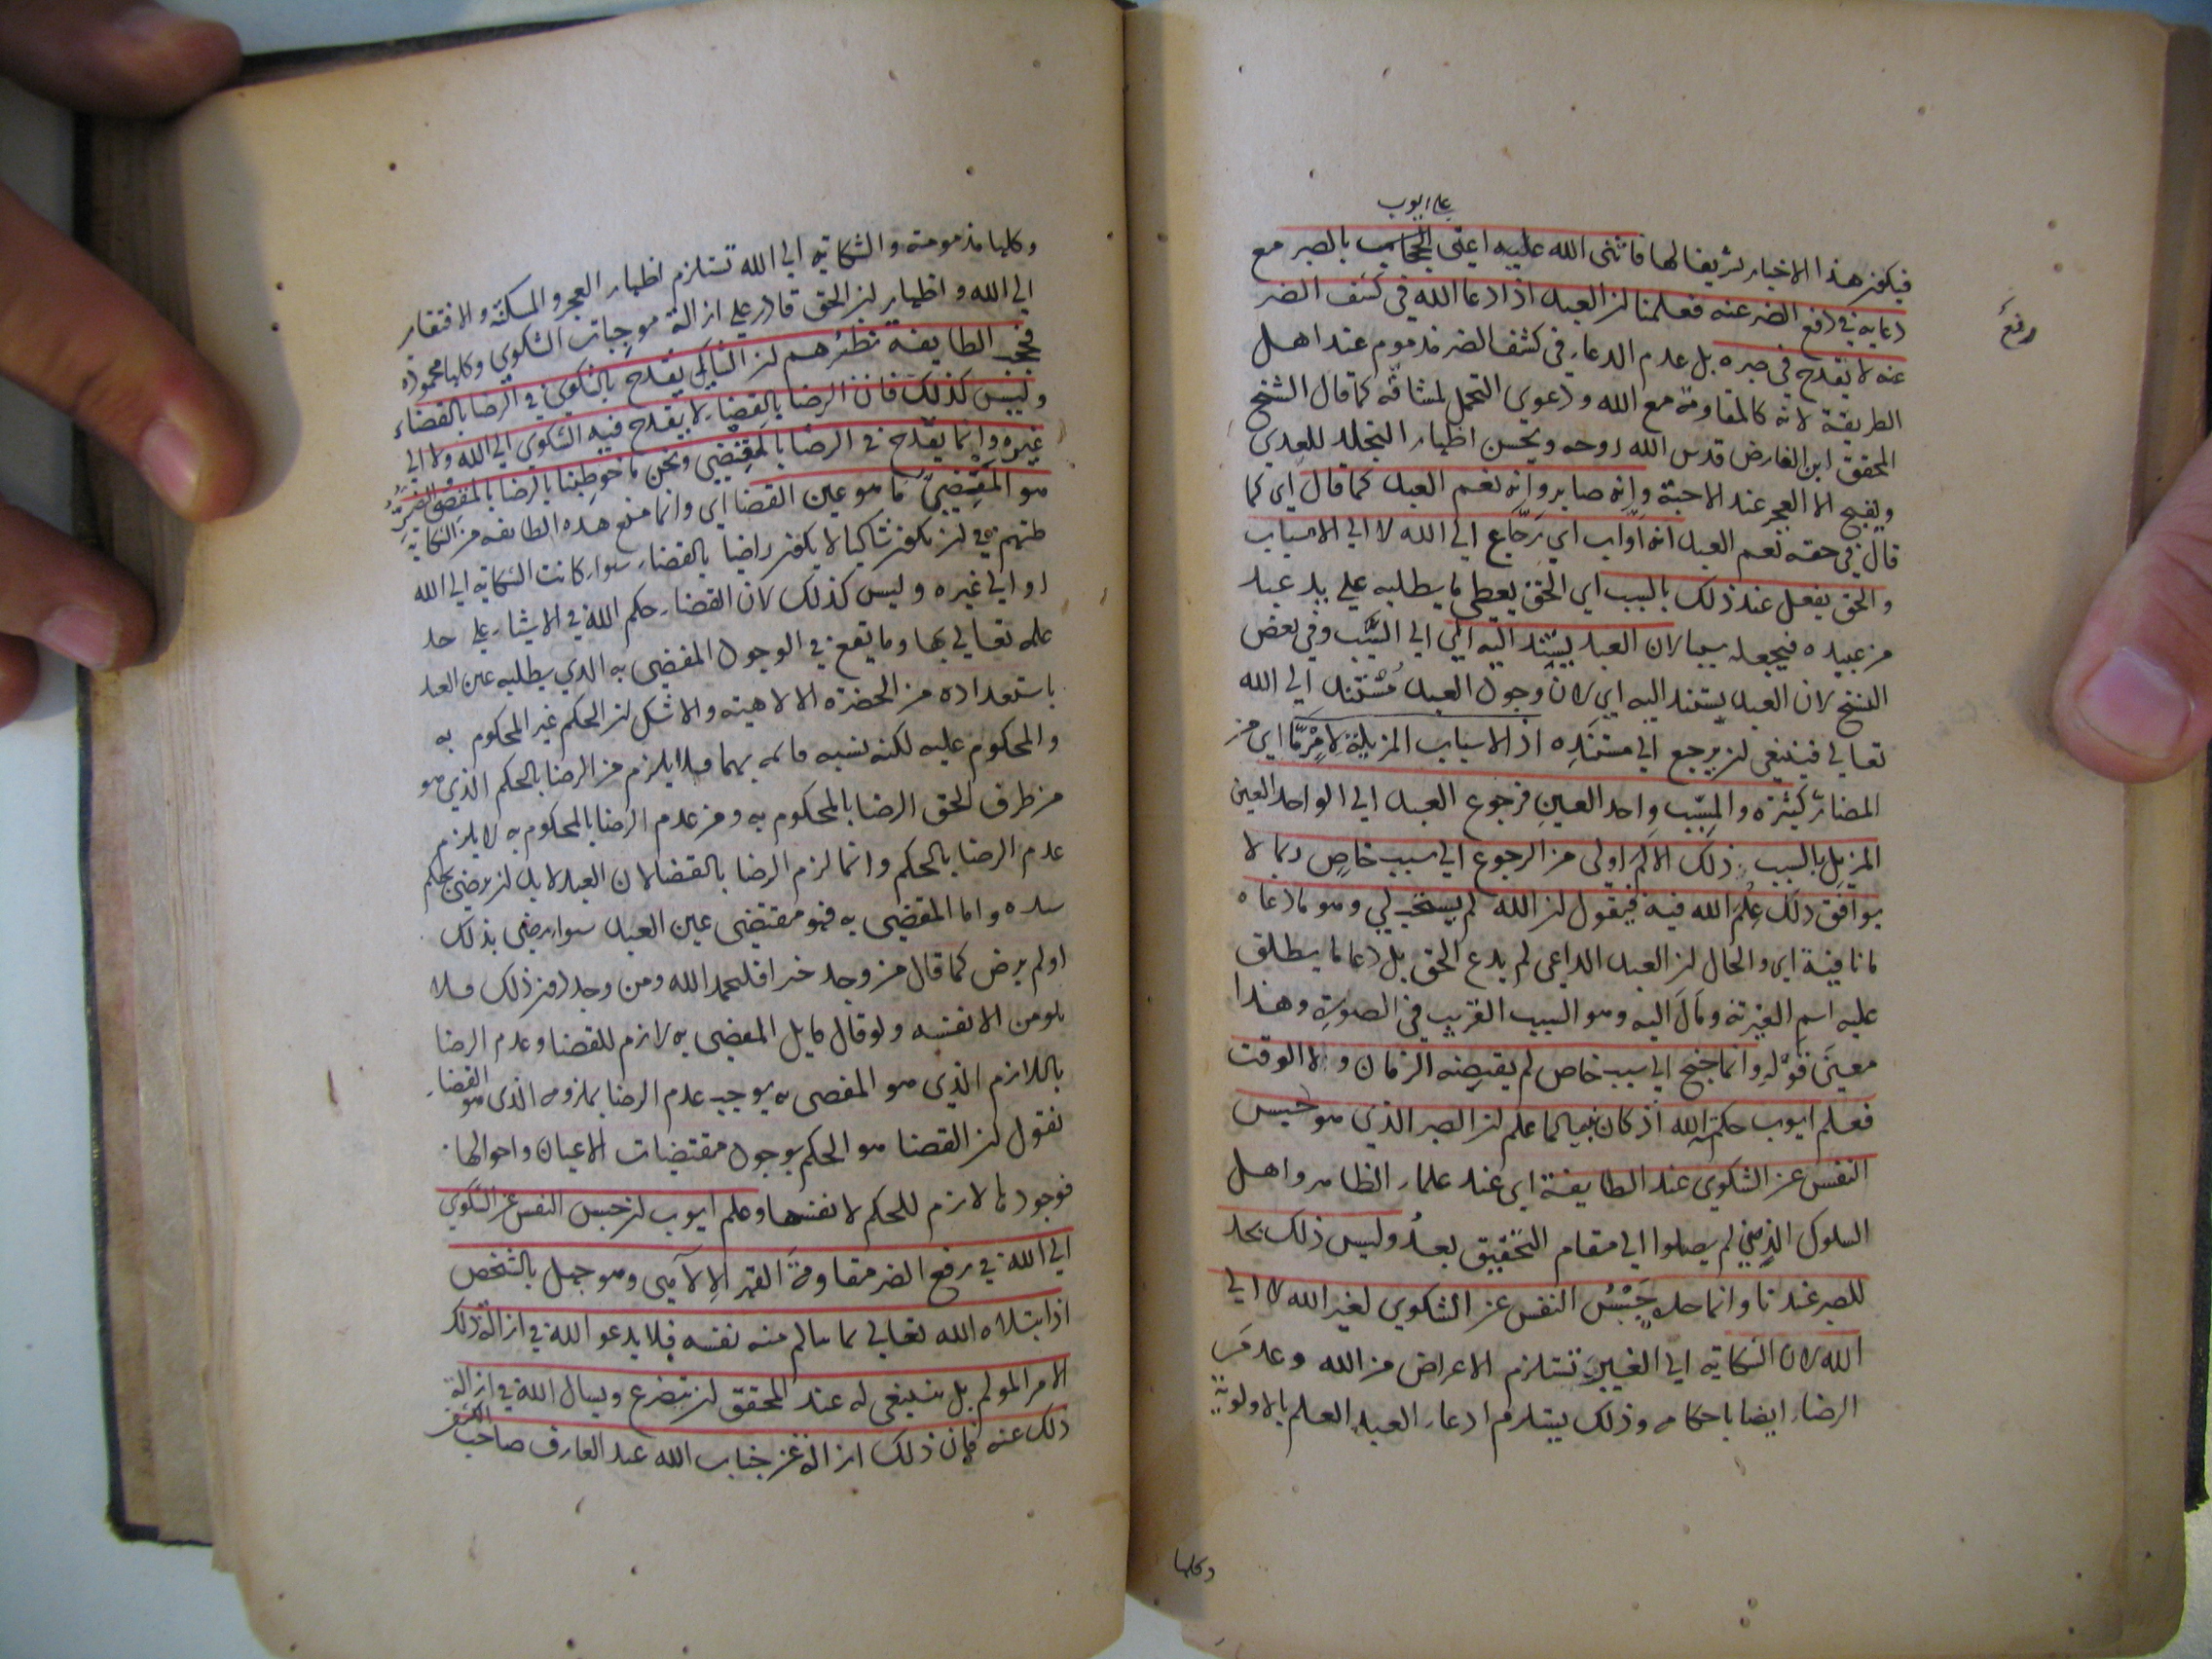 على ايوب
فيكون هذا الاخبار تشريفا لها فاثنى الله عليه اعني بالصبر مع
دعايه في دفع الضر عنه فعلمنا ان العبد اذا دعا الله في كشف الضر
رفع
عنه لا يقدح في صبره بل عدم الدعاء في كشف الضر مذموم عند اهل
الطريقة لانه كالمقاومة مع الله ودعوى التحمل لمشاقه كما قال الشيخ
المحقق ابن الفارض قدس الله روحه ويحسن اظهار التجلد للعدى
ويقبح الا العجز عند الاحبة وانه صابر وانه نعم العبد كما قال اي كما
قال في حقه نعم العبد انه اواب اي رجاع الى الله لا الى الاسباب
والحق يفعل عند ذلك بالسبب اي الحق يعطي ما يطلبه على يد عبد
من عبيده فيجعله سببا لان العبد يستند اليه اي الى السبب وفي بعض
النسخ لان العبد يستند اليه اي لان وجود العبد مستند الى الله
تعالى فينبغي ان يرجع الى مستنده اذ الاسباب المزيلة لامر ما اي من
المضار كثيرة والمسبب واحد العين فرجوع العبد الى الواحد العين
المزيل بالسبب ذلك الالم اولى من الرجوع الى سبب خاص ربما لا
يوافق ذلك علم الله فيه فيقول ان الله لم يستجب لي وهو ما دعاه
اي والحال ان العبد الداعي لم يدع الحق بل دعا ما يطلق
عليه اسم الغيرية ومال اليه وهو السبب القريب في الصورة وهذا
معنى قوله وانما جنح الى سبب خاص لم يقتضه الزمان ولا الوقت
فعلم ايوب بحكمة الله اذ كان نبيا لما علم ان الصبر الذي هو حبس
النفس عن الشكوى عند الطايفة اي عند علماء الظاهر واهل
السلوك الذين لم يصلوا الى مقام التحقيق بعد وليس ذلك بحد
للصبر عندنا وانما حده حبس النفس عن الشكوى لغير الله لا الى
الله لان الشكاية الى الغير تستلزم الاعراض من الله وعدم
الرضاء ايضا باحكامه وذلك يستلزم ادعاء العبد العلم بالاولوية
وكلها
وكلها مذمومة والشكاية الى الله تستلزم اظهار العجز والمسكنة والافتقار
الى الله واظهار ان الحق قادر على ازالة موجبات الشكوى وكلها محمودة
فحجب الطايفة نظرهم ان الشاكي يقدح بالشكوى في الرضا بالقضاء
وليس كذلك فان الرضا بالقضاء لا يقدح فيه الشكوى الى الله ولا الى
غيره وانما يقدح في الرضا بالمقضي ونحن ما خوطبنا بالرضا بالمقضي الضر
هو المقضي ما هو عين القضا اي وانما منع هذه الطايفة من الشكاية
ظنهم في ان يكون شاكيا لا يكون راضيا بالقضاء سواء كانت الشكاية الى الله
او الى غيره وليس كذلك لان القضاء حكم الله في الاشياء على حد
علمه تعالى بها وما يقع في الوجود المقضي به الذي يطلبه عين العبد
باستعداده من الحضرة الالاهية ولا شك ان الحكم غير المحكوم به
والمحكوم عليه لكنه نسبه قائمة بهما فلا يلزم من الرضا بالحكم الذي هو
من طرف الحق الرضا بالمحكوم به ومن عدم الرضا بالمحكوم به لا يلزم
عدم الرضا بالحكم وانما لزم الرضا بالقضا لان العبد لا بد ان يرضى بحكم
سيده واما المقضي به فهو مقتضى عين العبد سواء رضي بذلك
او لم يرض كما قال من وجد خيرا فليحمد الله ومن وجد دون ذلك فلا
يلومن الا نفسه ولو قال قايل المقضي به لازم للقضا وعدم الرضا
باللازم الذي هو المقضي به يوجب عدم الرضا بملزومه الذي هو القضاء
نقول ان القضا هو الحكم بوجود مقتضيات الاعيان واحوالها
فوجودها لازم للحكم لا نفسها وعلم ايوب ان حبس النفس عن الشكوى
الى الله في رفع الضر مقاومة القهر الالاهي وهو جهل بالشخص
اذا ابتلاه الله تعالى بما تتالم منه نفسه فلا يدعو الله في ازالة ذلك
الامر المولم بل ينبغي له عند المحقق ان يتضرع ويسال الله في ازالة
ذلك عنه فان ذلك ازالة عن جناب الله عند العارف صاحب الكشف